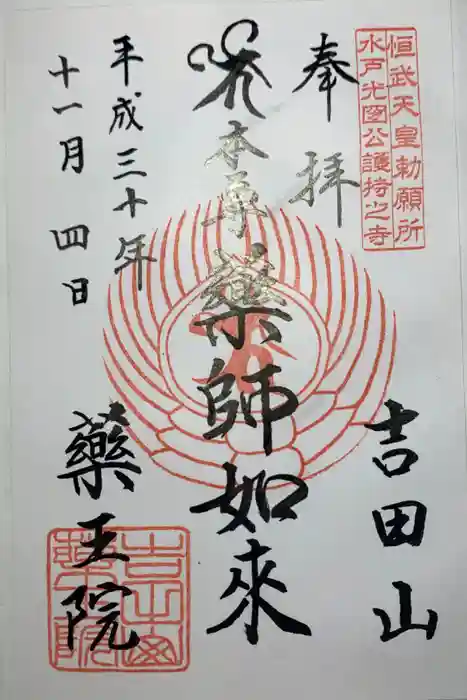 恒武天皇勅願所
水戸光圀公護持之寺
奉拝
吉田山
本尊
藥師如来
平成三十年
十一月四日
藥王院
吉田山
藥王院